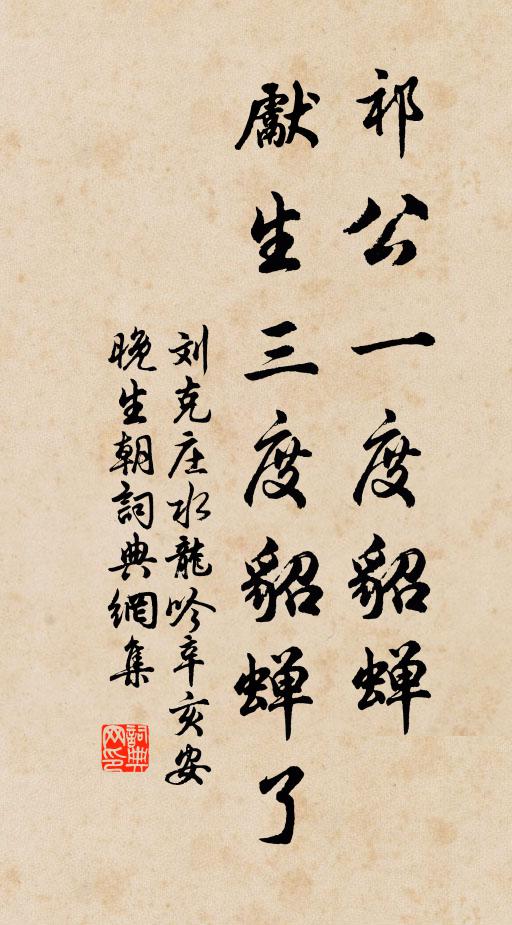 祁公一度貂蝉
獻生三度貂蝉了
刘克庄水龍吟辛亥安
晚生朝詞典網集
詞典网印